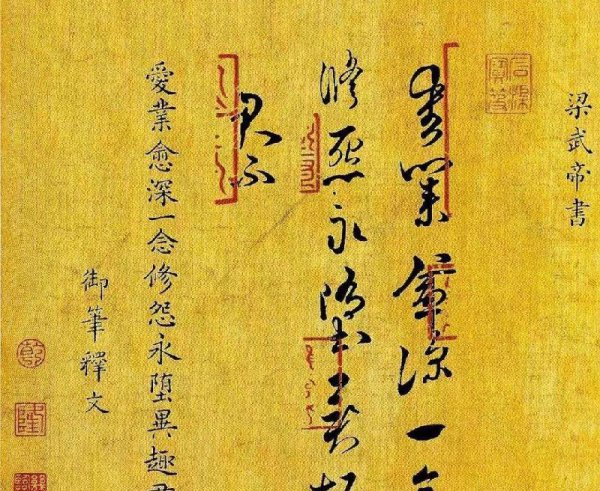 梁武帝書
愛業愈深一念
脩怨永墮異趣
君不
愛業愈深一念修怨永墮異趣君
御筆釋文
乾
隆